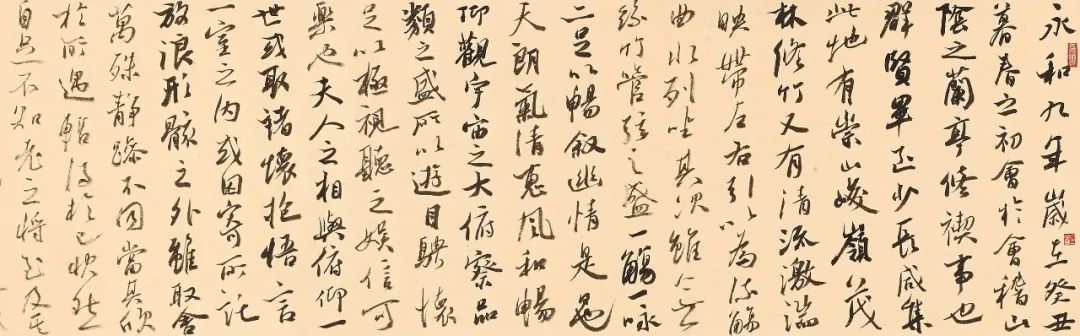 永和九年歲在癸丑
暮春之初會於會稽山
陰之蘭亭修禊事也
群賢畢至少長咸集
此地有崇山峻嶺茂
林修竹又有清流激湍
映帶左右引以為流觴
曲水列坐其次雖無
絲竹管弦之盛一觴一詠
亦足以暢叙幽情是日
天朗氣清惠風和暢
仰觀宇宙之大俯察品
類之盛所以遊目騁懷
足以極視聽之娛信可
樂也夫人之相與俯仰一
世或取諸懷抱悟言
一室之内或因寄所託
放浪形骸之外雖取舍
萬殊靜躁不同當其欣
於所遇輒得於己快然
自足不知老之將至及其